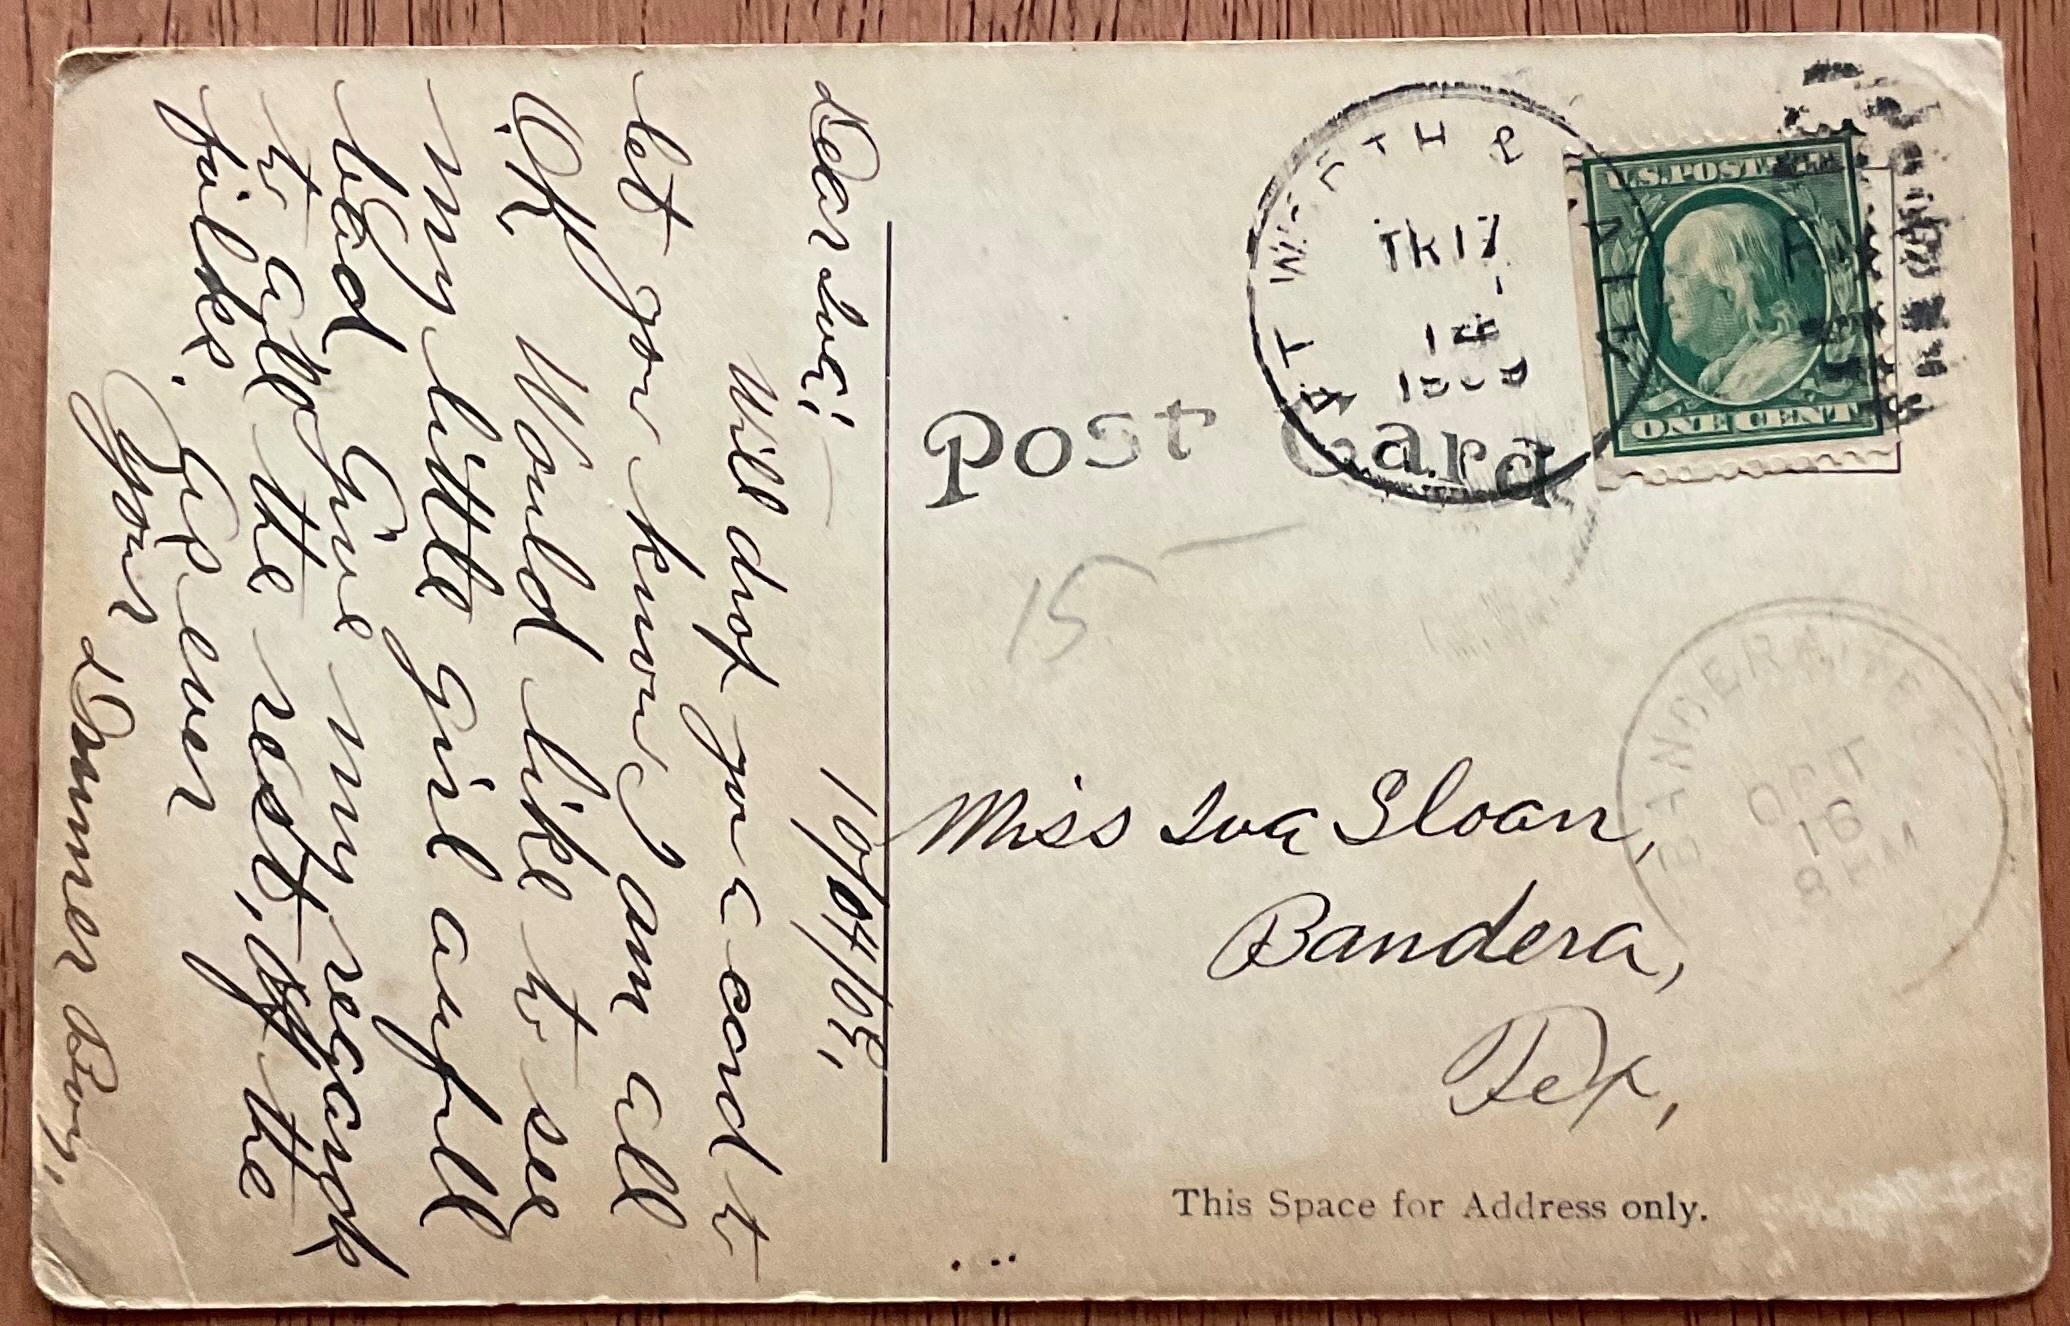 Dear Iva:— 10/04/09,
Will drop you a card to
let you know I am all
O.K. Would like to see
my little girl aufull
bad Give my regards
to allo the rest, off the
folks. As ever
Your
Drummer Boy,
Post Card
U.S. POSTAGE
ONE CENT
FT WORTH &
TR 17
14
BANDERA, TEX.
OCT
16
8 PM
15—
Miss Iva Sloan,
Bandera,
Tex,
This Space for Address only.